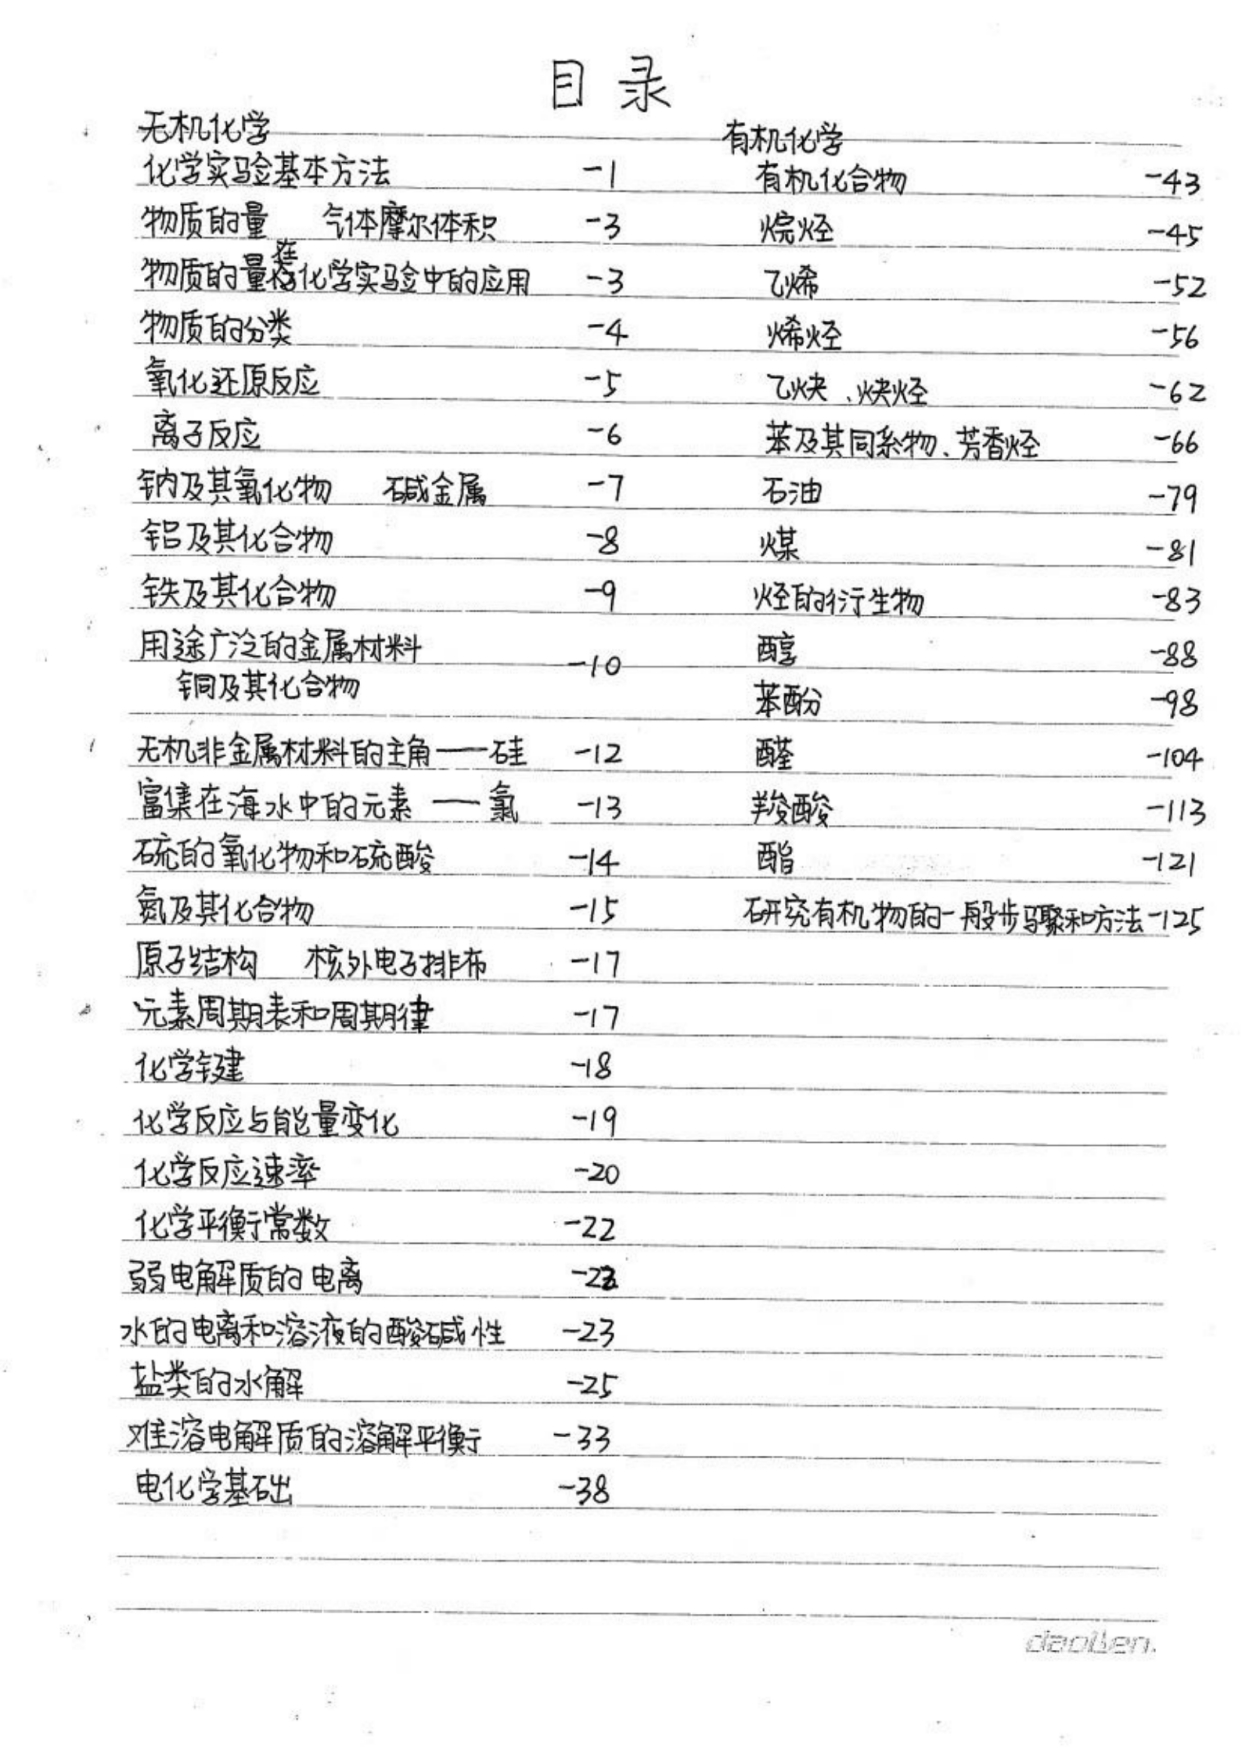 目录
无机化学
化学实验基本方法 -1
物质的量 气体摩尔体积 -3
物质的量在化学实验中的应用 -3
物质的分类 -4
氧化还原反应 -5
离子反应 -6
钠及其氧化物 碱金属 -7
铝及其化合物 -8
铁及其化合物 -9
用途广泛的金属材料 -10
铜及其化合物
无机非金属材料的主角——硅 -12
富集在海水中的元素——氯 -13
硫的氧化物和硫酸 -14
氮及其化合物 -15
原子结构 核外电子排布 -17
元素周期表和周期律 -17
化学键 -18
化学反应与能量变化 -19
化学反应速率 -20
化学平衡常数 -22
弱电解质的电离 -23
水的电离和溶液的酸碱性 -23
盐类的水解 -25
难溶电解质的溶解平衡 -33
电化学基础 -38
有机化学
有机化合物 -43
烷烃 -45
乙烯 -52
烯烃 -56
乙炔、炔烃 -62
苯及其同系物、芳香烃 -66
石油 -79
煤 -81
烃的衍生物 -83
醇 -88
苯酚 -98
醛 -104
羧酸 -113
酯 -121
研究有机物的一般步骤和方法 -125